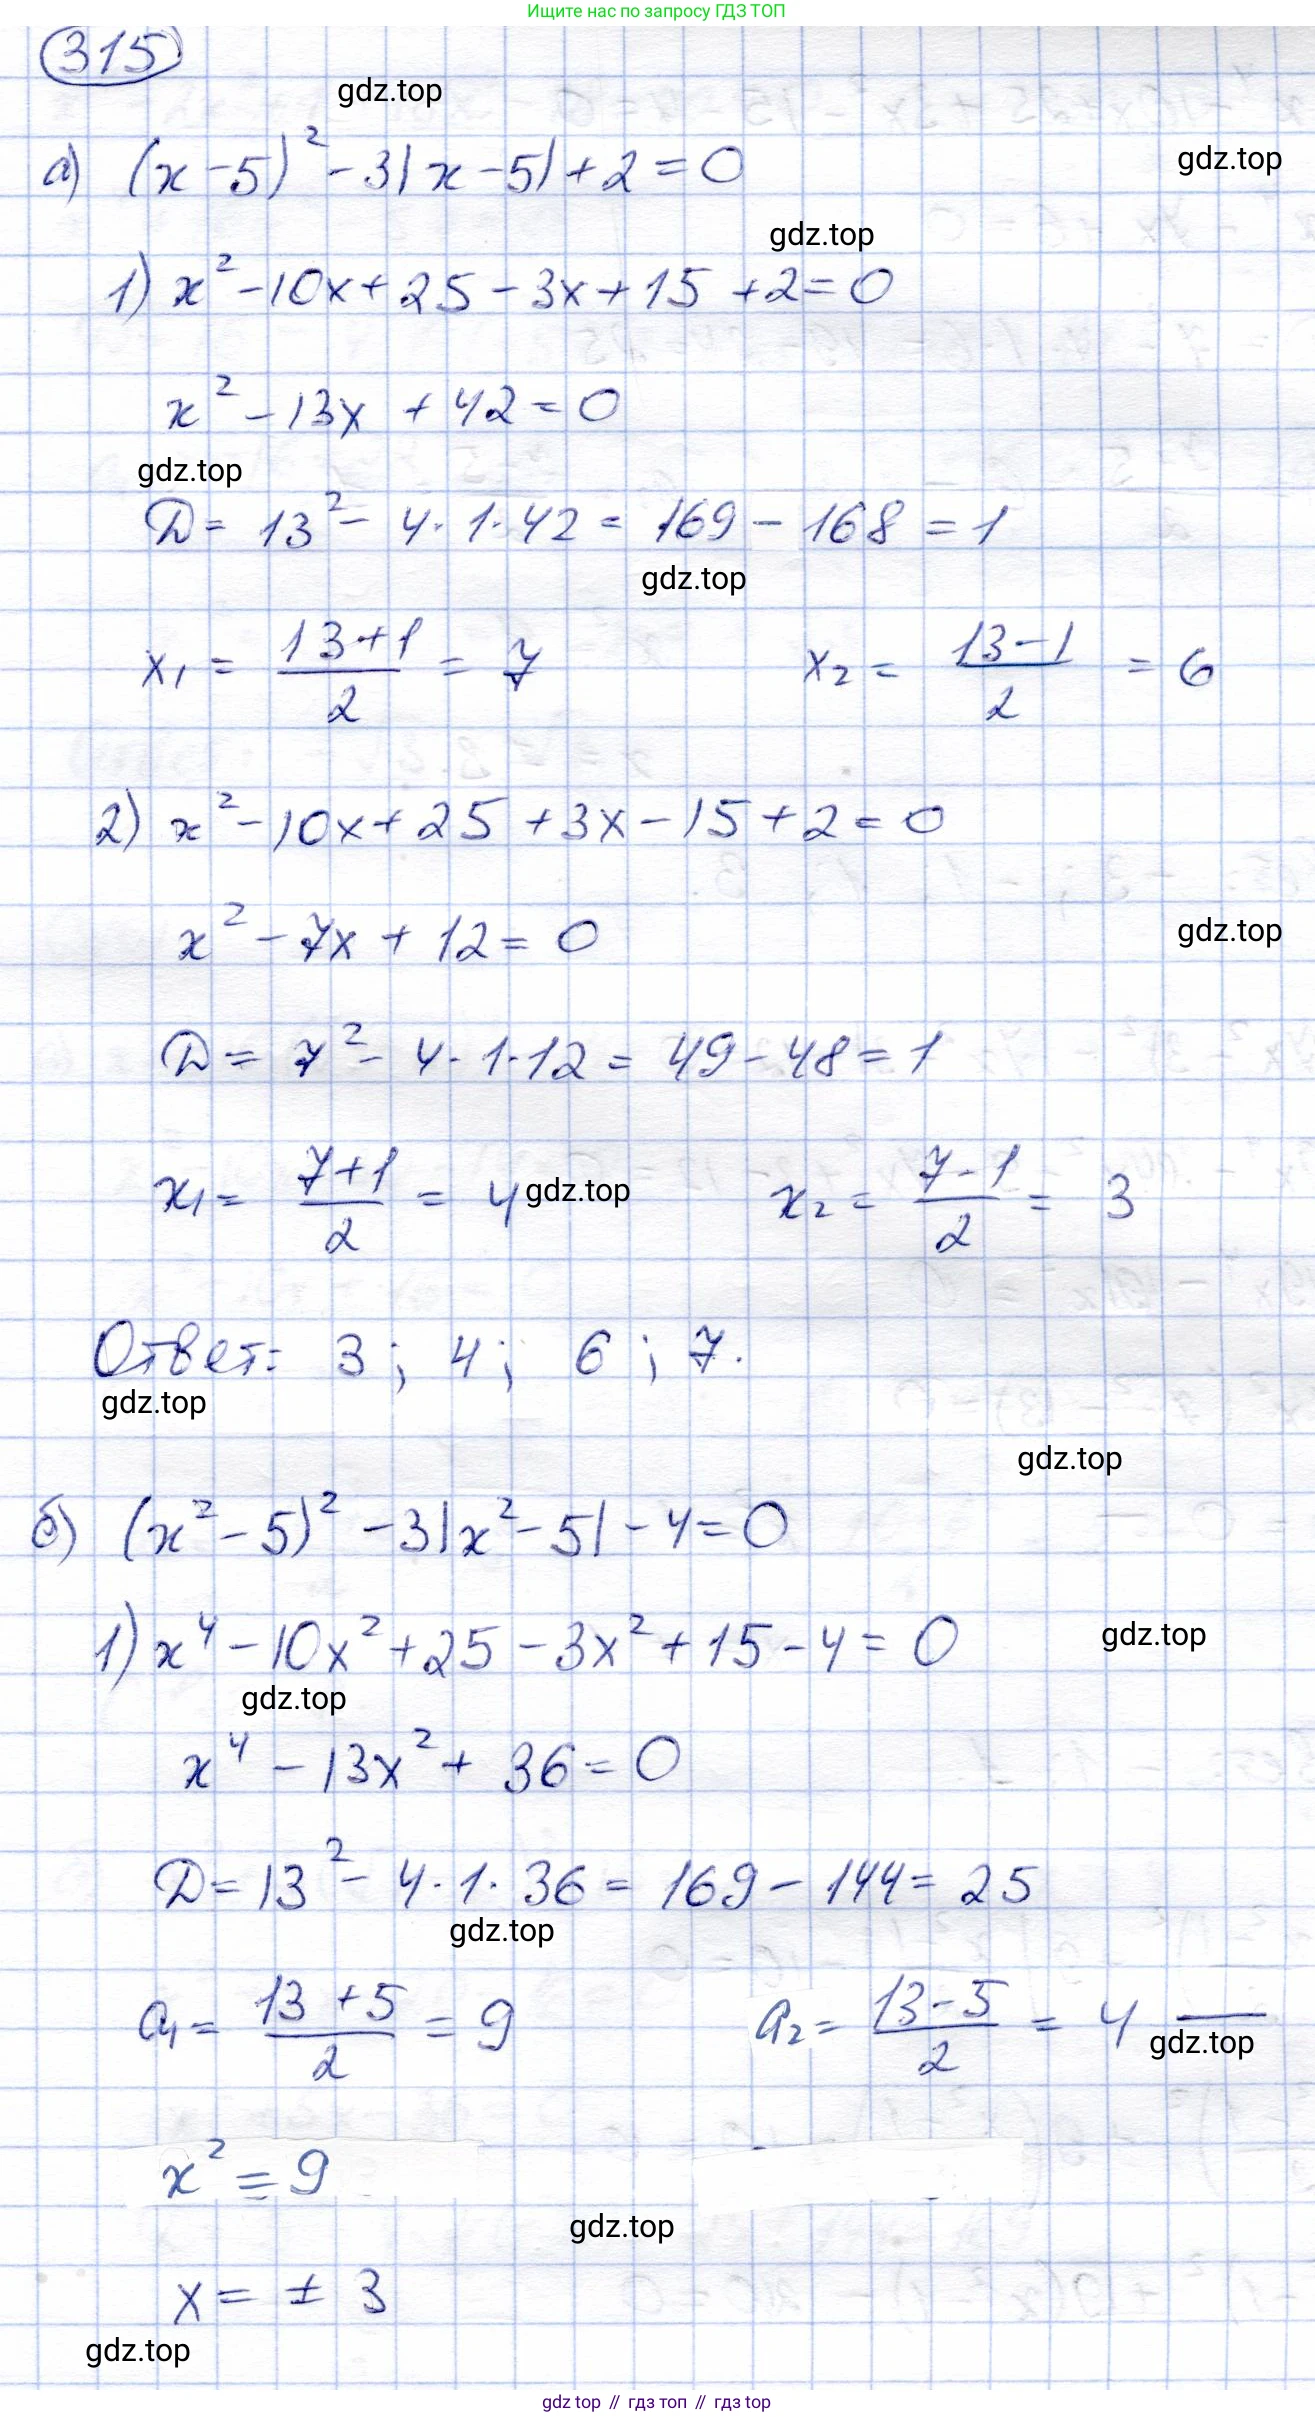 Ищите нас по запросу ГДЗ ТОП
315
gdz.top
а) (x-5)² - 3|x-5| + 2 = 0
gdz.top
gdz.top
1) x² - 10x + 25 - 3x + 15 + 2 = 0
x² - 13x + 42 = 0
gdz.top
D = 13² - 4·1·42 = 169 - 168 = 1
gdz.top
x₁ = (13+1)/2 = 7 x₂ = (13-1)/2 = 6
2) x² - 10x + 25 + 3x - 15 + 2 = 0
x² - 7x + 12 = 0
gdz.top
D = 7² - 4·1·12 = 49 - 48 = 1
x₁ = (7+1)/2 = 4 gdz.top x₂ = (7-1)/2 = 3
Ответ: 3; 4; 6; 7.
gdz.top
gdz.top
б) (x² - 5)² - 3|x² - 5| - 4 = 0
1) x⁴ - 10x² + 25 - 3x² + 15 - 4 = 0
gdz.top
gdz.top
x⁴ - 13x² + 36 = 0
D = 13² - 4·1·36 = 169 - 144 = 25
gdz.top
a₁ = (13+5)/2 = 9 a₂ = (13-5)/2 = 4 —
gdz.top
x² = 9
gdz.top
x = ± 3
gdz.top
gdz top // гдз топ // gdz top